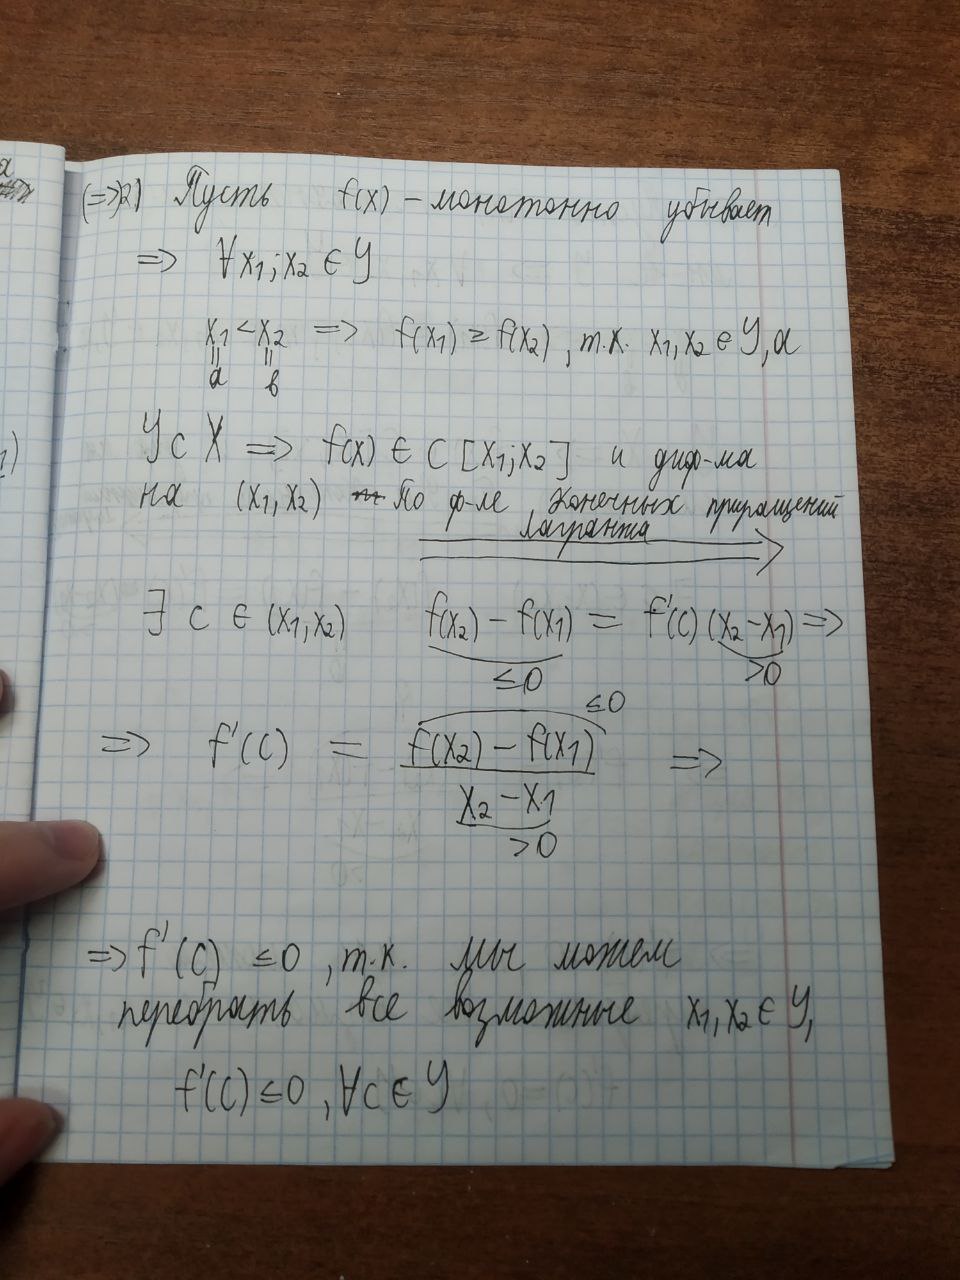 (=>)2) Пусть f(x) – монотонно убывает
=> ∀ x₁; x₂ ∈ Y
x₁ < x₂ => f(x₁) ≥ f(x₂), т.к. x₁, x₂ ∈ Y, а
a в
Y ⊂ X => f(x) ∈ C [x₁; x₂] и диф-ма
на (x₁, x₂) По ф-ле конечных приращений
Лагранжа
∃ c ∈ (x₁, x₂) f(x₂) – f(x₁) = f'(c) (x₂ – x₁) =>
≤ 0 > 0
≤ 0
=> f'(c) = f(x₂) – f(x₁) =>
x₂ – x₁
> 0
=> f'(c) ≤ 0, т.к. мы можем
перебрать все возможные x₁, x₂ ∈ Y,
f'(c) ≤ 0, ∀ c ∈ Y